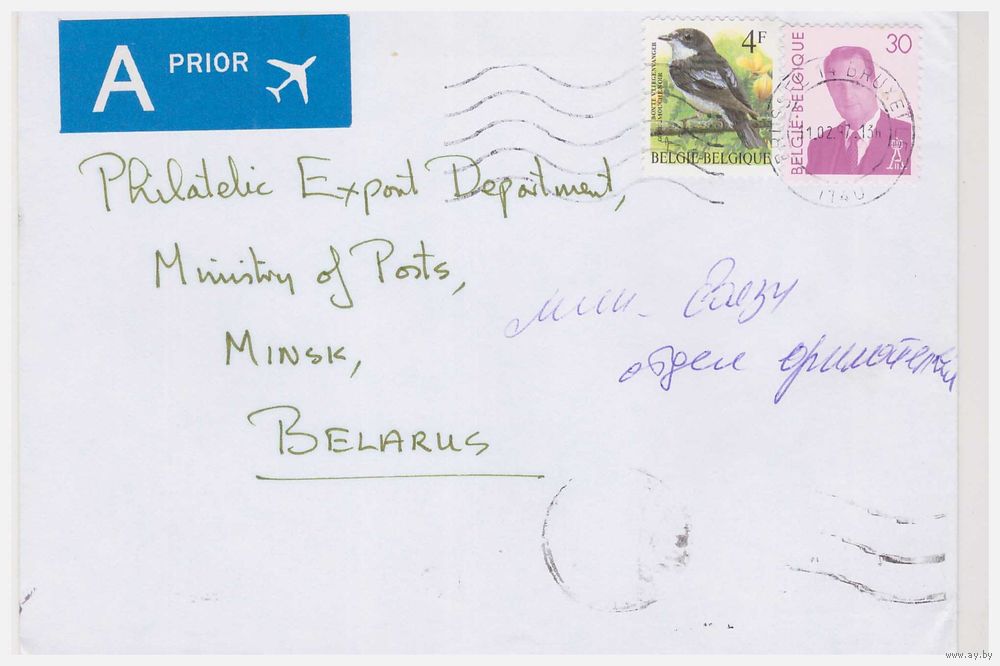 A PRIOR
4F
BONTE VLIEGENVANGER
GOBEMOUCHE NOIR
BELGIE-BELGIQUE
30
BELGIE-BELGIQUE
1140
Philatelic Export Department,
Ministry of Posts,
Minsk,
Belarus
мин. связи
отдел филателии
www.ay.by